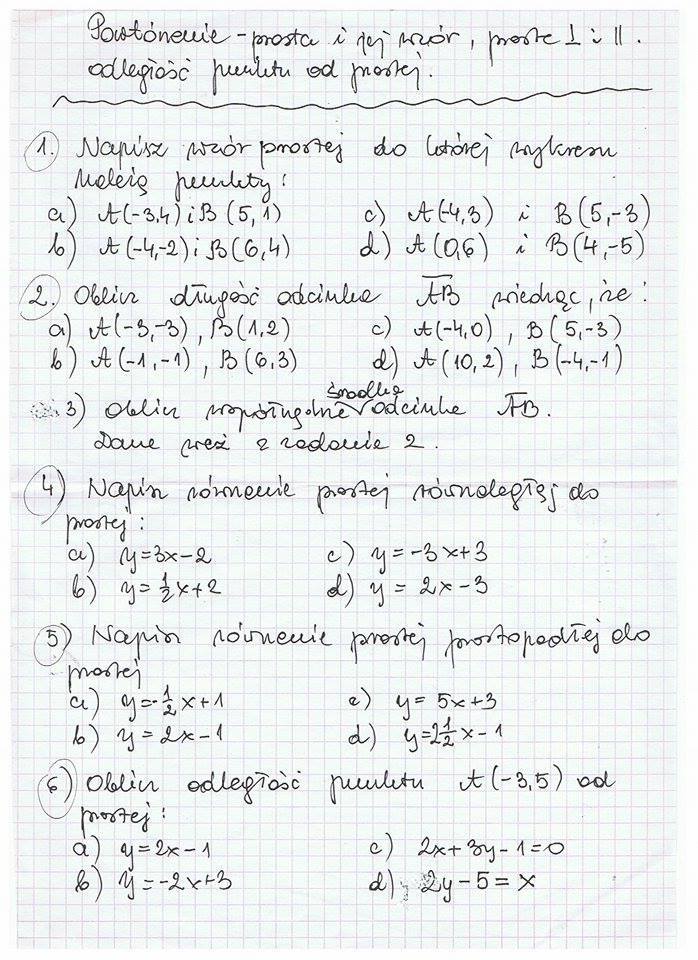 Powtórzenie - prosta i jej wzór, proste ⊥ i ||.
odległość punktu od prostej.
1. Napisz wzór prostej do której wykresu
należą punkty:
a) A(-3,4) i B(5,1) c) A(-4,3) i B(5,-3)
b) A(-4,-2) i B(6,4) d) A(0,6) i B(4,-5)
2. Oblicz długość odcinka AB wiedząc, że:
a) A(-3,-3), B(1,2) c) A(-4,0), B(5,-3)
b) A(-1,-1), B(6,3) d) A(10,2), B(-4,-1)
3) Oblicz współrzędne środka odcinka AB.
Dane weź z zadania 2.
4) Napisz równanie prostej równoległej do
prostej:
a) y=3x-2 c) y=-3x+3
b) y=½x+2 d) y = 2x-3
5) Napisz równanie prostej prostopadłej do
prostej
a) y=-½x+1 c) y= 5x+3
b) y= 2x-1 d) y=2½x-1
6) Oblicz odległość punktu A(-3,5) od
prostej:
a) y=2x-1 c) 2x+3y-1=0
b) y=-2x+3 d) 2y-5=x